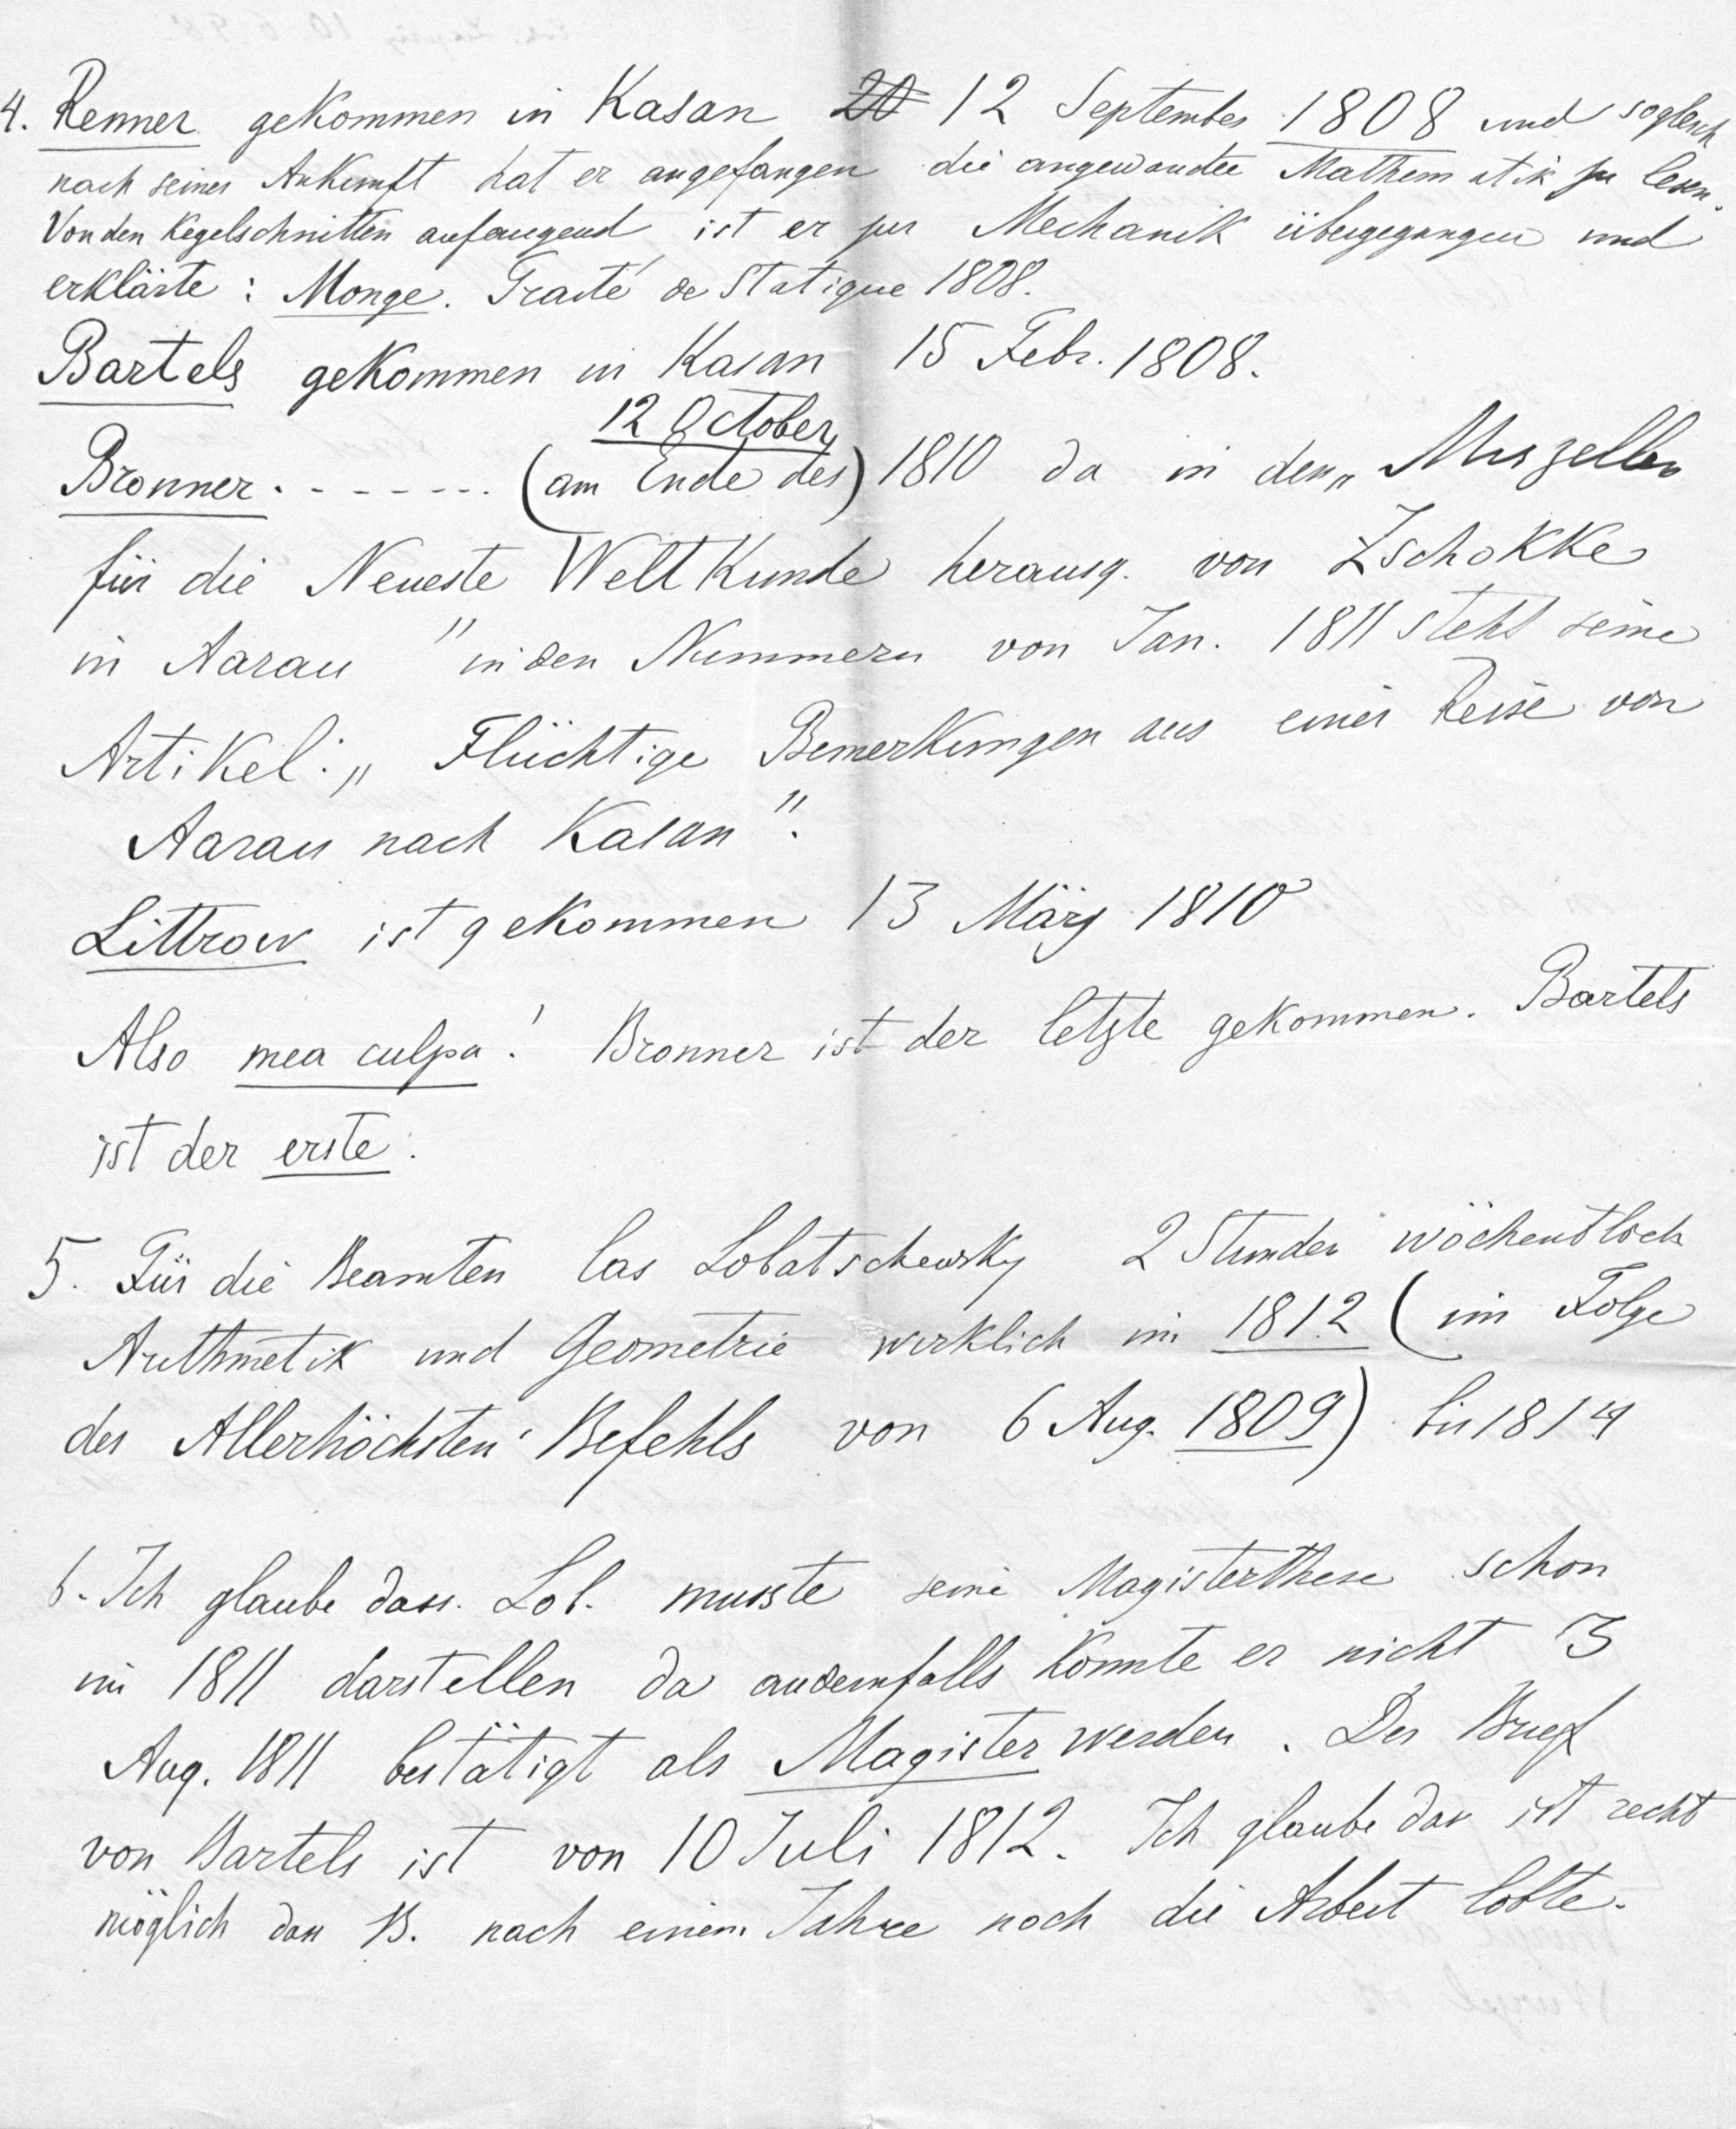 4. Renner gekommen in Kasan 20 12 September 1808 und sogleich
nach seiner Ankunft hat er angefangen die angewandte Mathematik zu lesen.
Von den Kegelschnitten anfangend ist er zur Mechanik übergegangen und
erklärte : Monge. Traité de Statique 1808.
Bartels gekommen in Kasan 15 Febr. 1808.
12 October
Bronner . - - - - - - . (am Ende des) 1810 da in den „ Miszellen
für die Neueste Weltkunde herausg. von Zschokke
in Aarau " in den Nummern von Jan. 1811 steht seine
Artikel: „ Flüchtige Bemerkungen aus einer Reise von
Aarau nach Kasan ".
Littrow ist gekommen 13 März 1810
Also mea culpa ! Bronner ist der letzte gekommen. Bartels
ist der erste.
5. Für die Beamten las Lobatschewsky 2 Stunden wöchentlich
Arithmetik und Geometrie wirklich im 1812 ( im Folge
des Allerhöchsten Befehls von 6 Aug. 1809) bis 1814
6. Ich glaube dass Lob. musste seine Magisterthese schon
im 1811 darstellen da andernfalls konnte er nicht 3
Aug. 1811 bestätigt als Magister werden. Der Brief
von Bartels ist von 10 Juli 1812. Ich glaube das ist recht
möglich dass B. nach einem Jahre noch die Arbeit lobte.